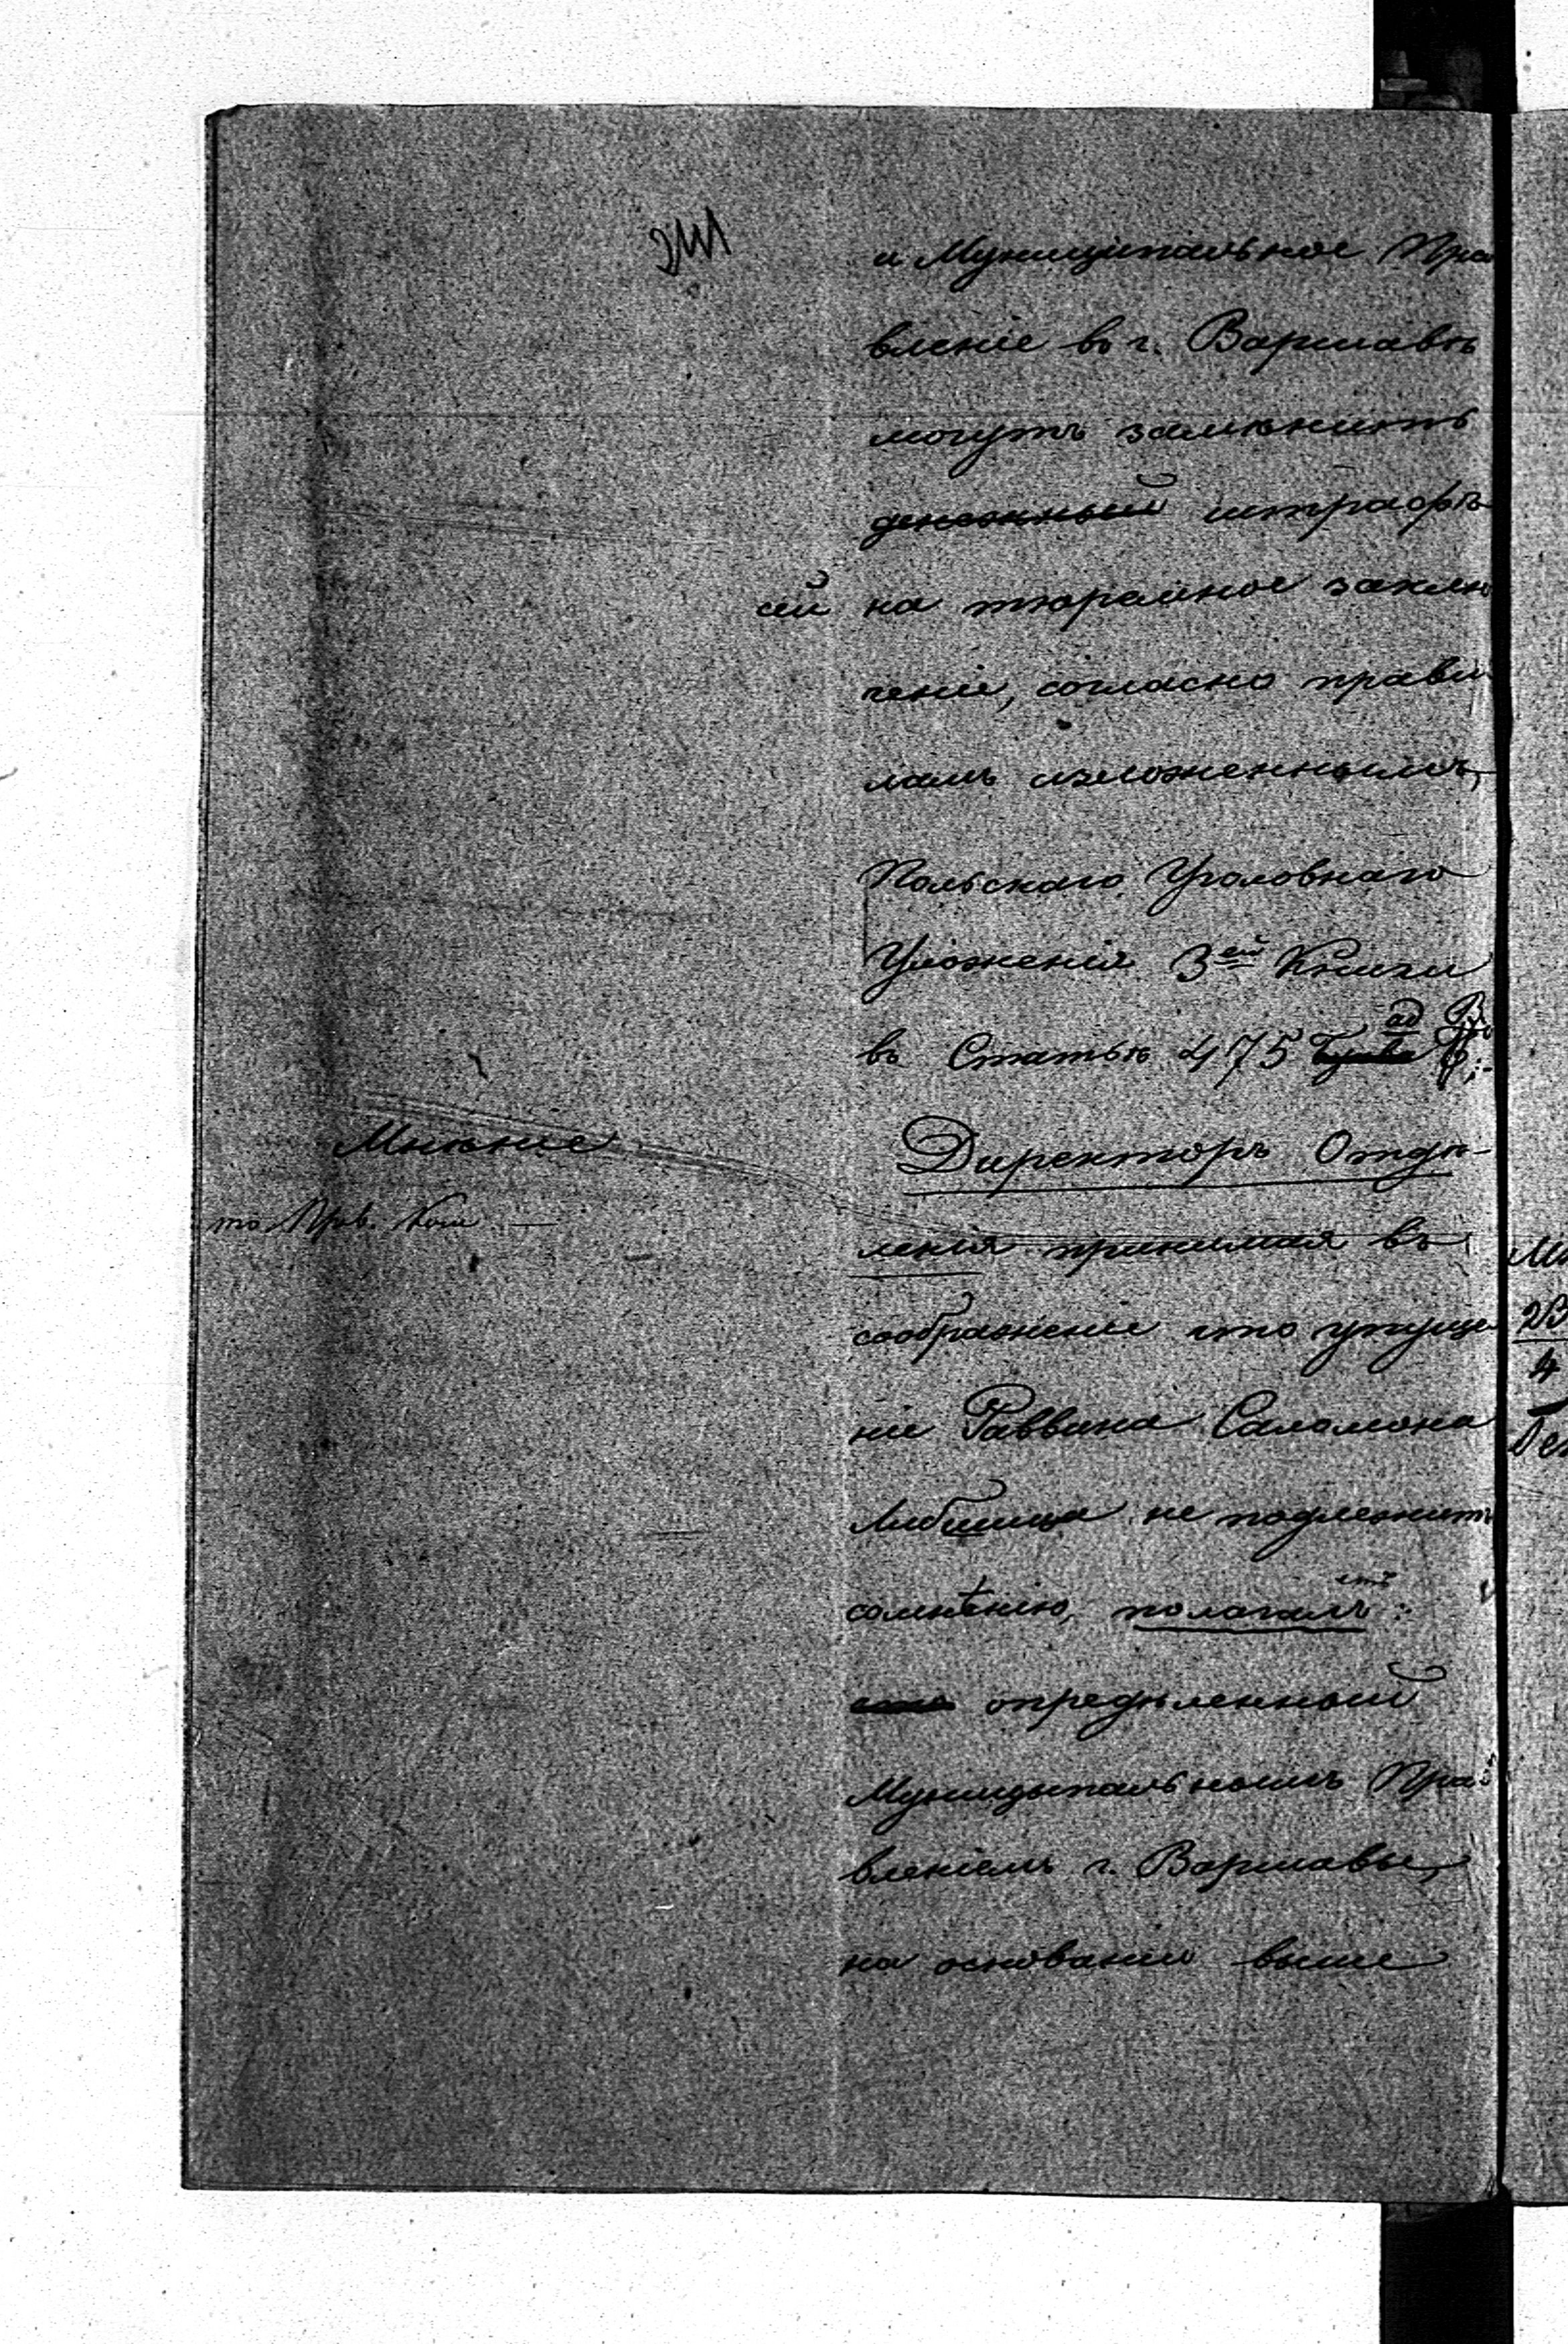 и Муниципальное Пра
вленіе въ г. Варшавѣ
могутъ замѣнить
денежный штрафъ
сей на тюремное заклю
ченіе, согласно прави
ламъ изложеннымъ,
Польскаго Уголовнаго
Уложенія 3ей Книги
въ Статьѣ 475 ad
Мнѣніе
Прав. Ком
Директоръ Отдѣ-
ленія принимая въ
соображеніе что упуще
ніе Раввина Саломона
Либшица не подлежитъ
сомнѣнію, полагалъ:
опредѣленный
Муницыпальнымъ Пра
вленіемъ г. Варшавы,
на основаніи выше